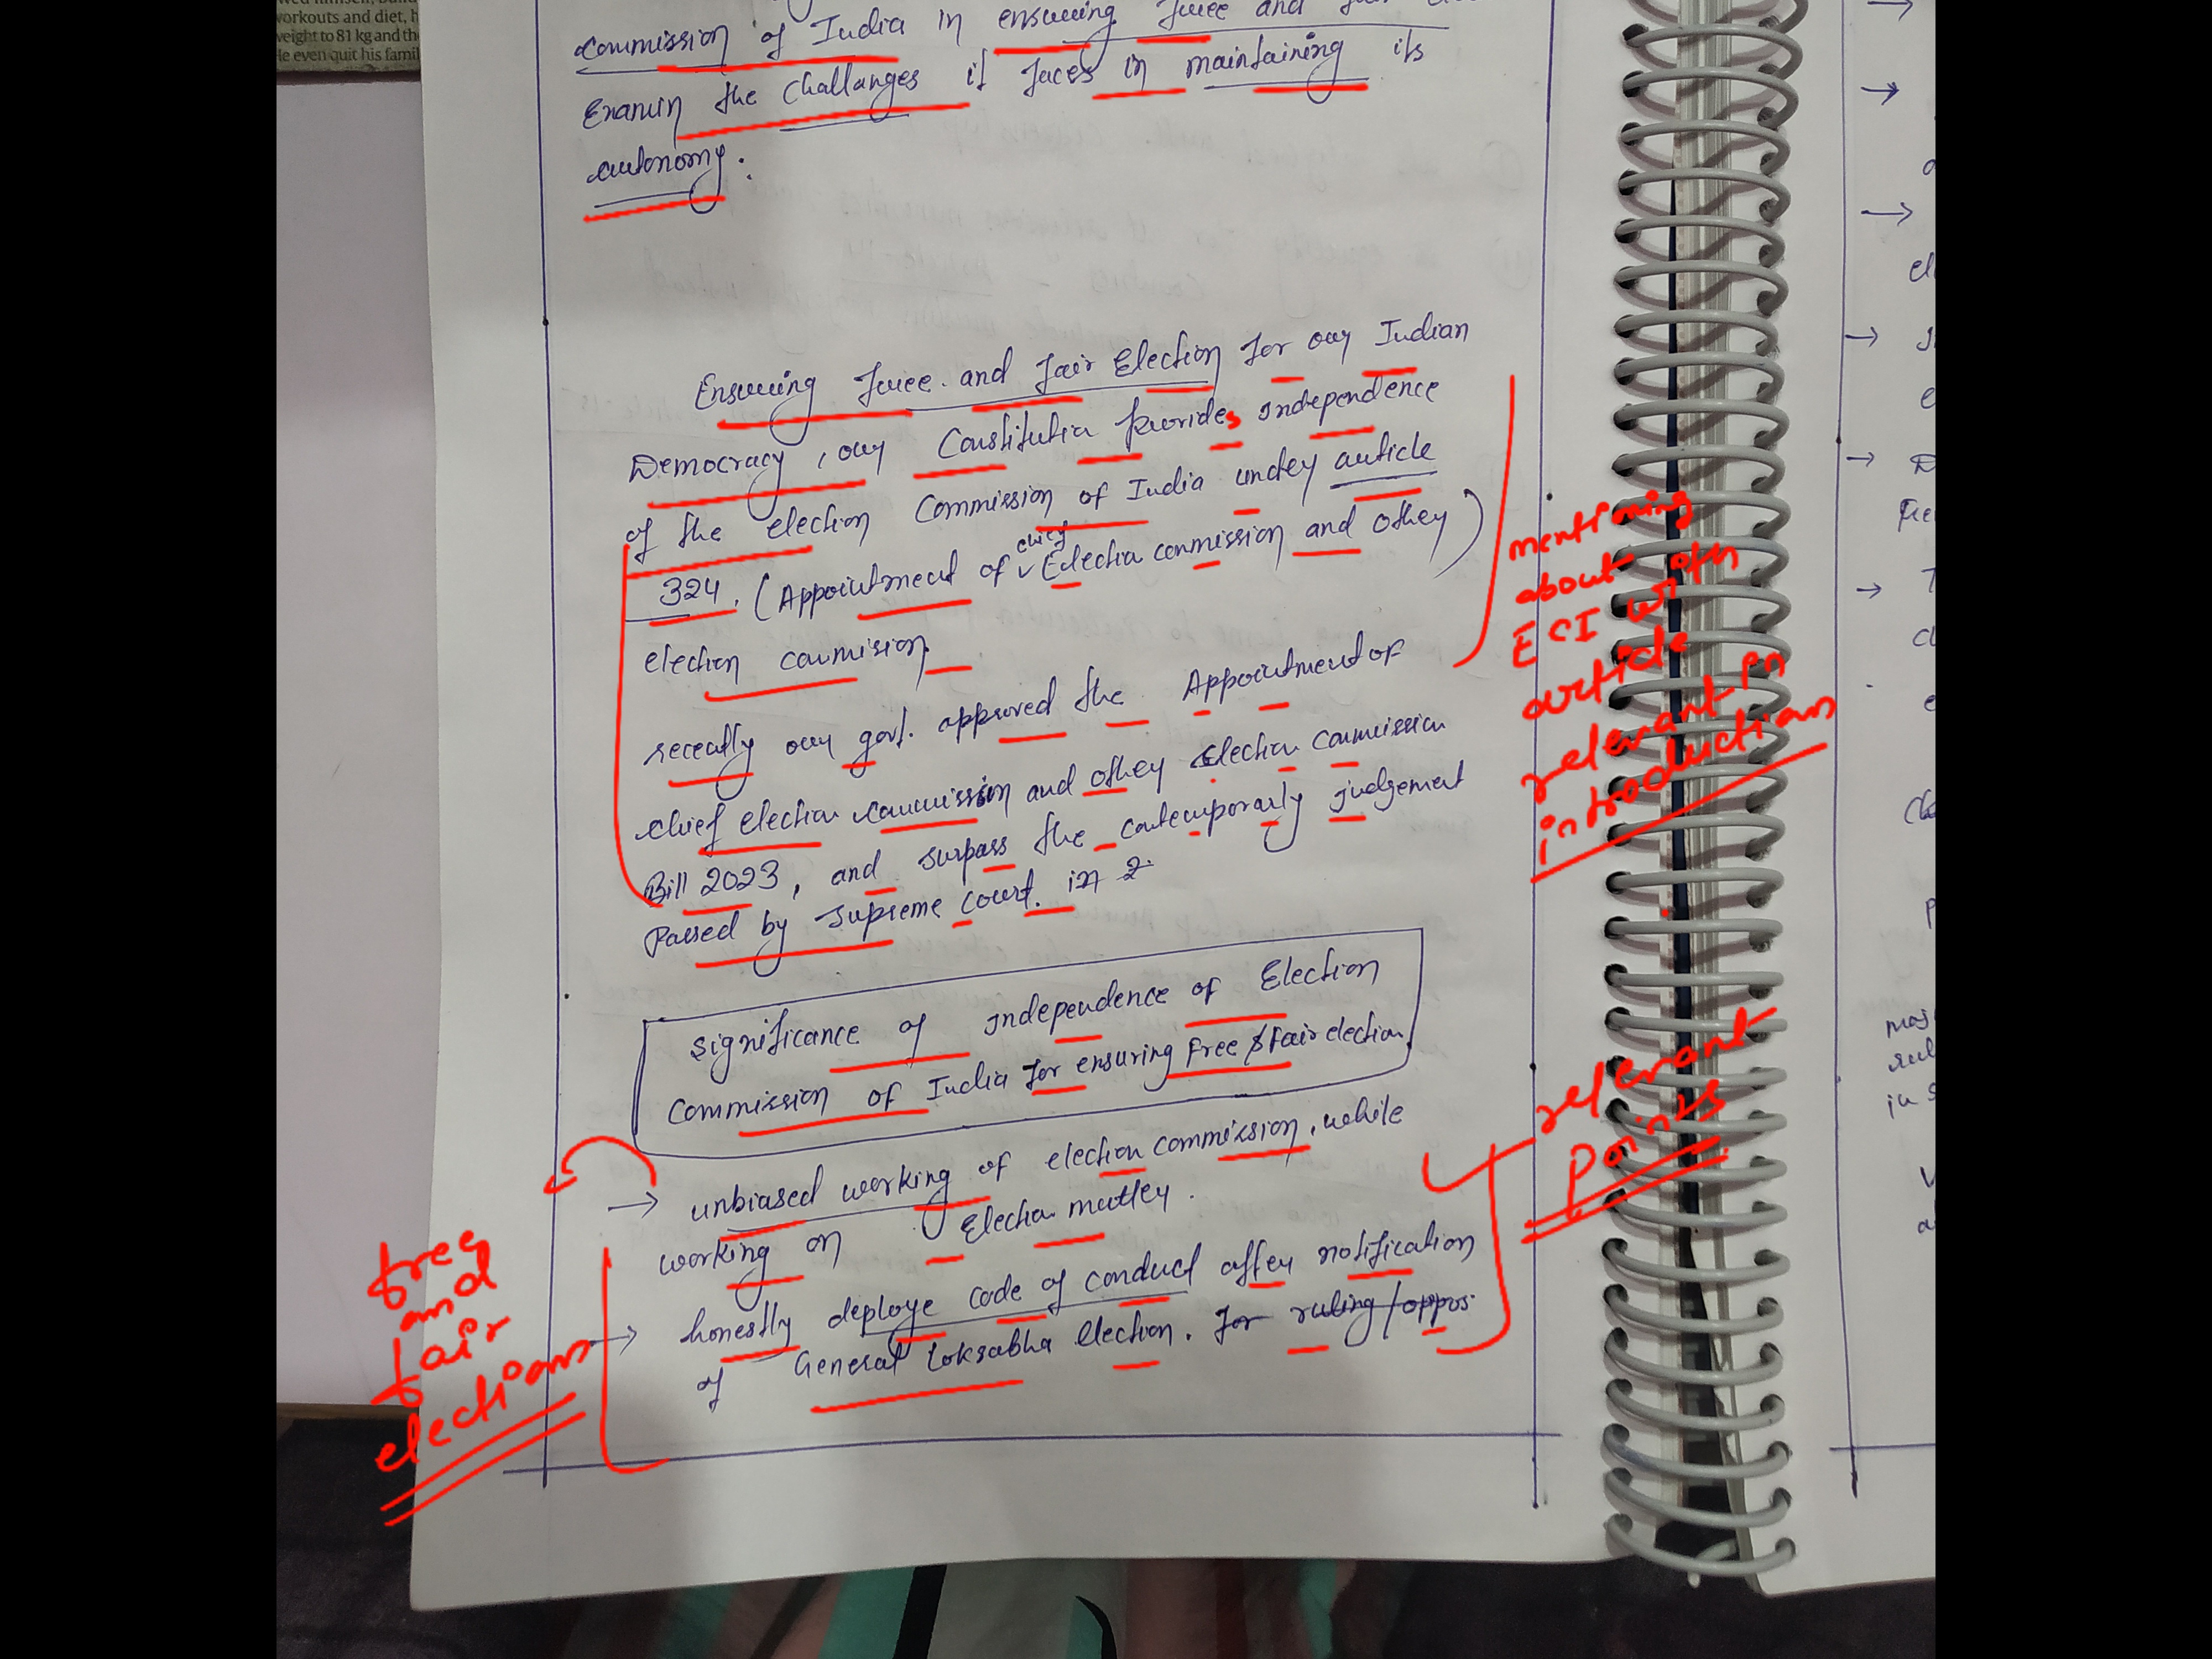 workouts and diet, h
weight to 81 kg and the
He even quit his famil
Commission of India in ensuring free and fair
Examin the challanges it faces in maintaining its
autonomy.
Ensuring free and fair Election for our Indian
Democracy, our Constitution provides independence
of the election Commission of India under article
324. (Appointment of chief Election commission and other
election commision)
recently our govt. approved the Appointment of
chief election commission and other election commission
Bill 2023, and surpass the contemporarly judgement
Passed by Supreme Court. in 2
mentioning
about
ECI with
article
relevant in
introduction
Significance of independence of Election
Commission of India for ensuring Free & Fair election
relevant
points
→ unbiased working of election commission, while
working on Election matter.
→ honestly deploye code of conduct after notification
of General Loksabha election. for ruling/oppos
free
and
fair
elections